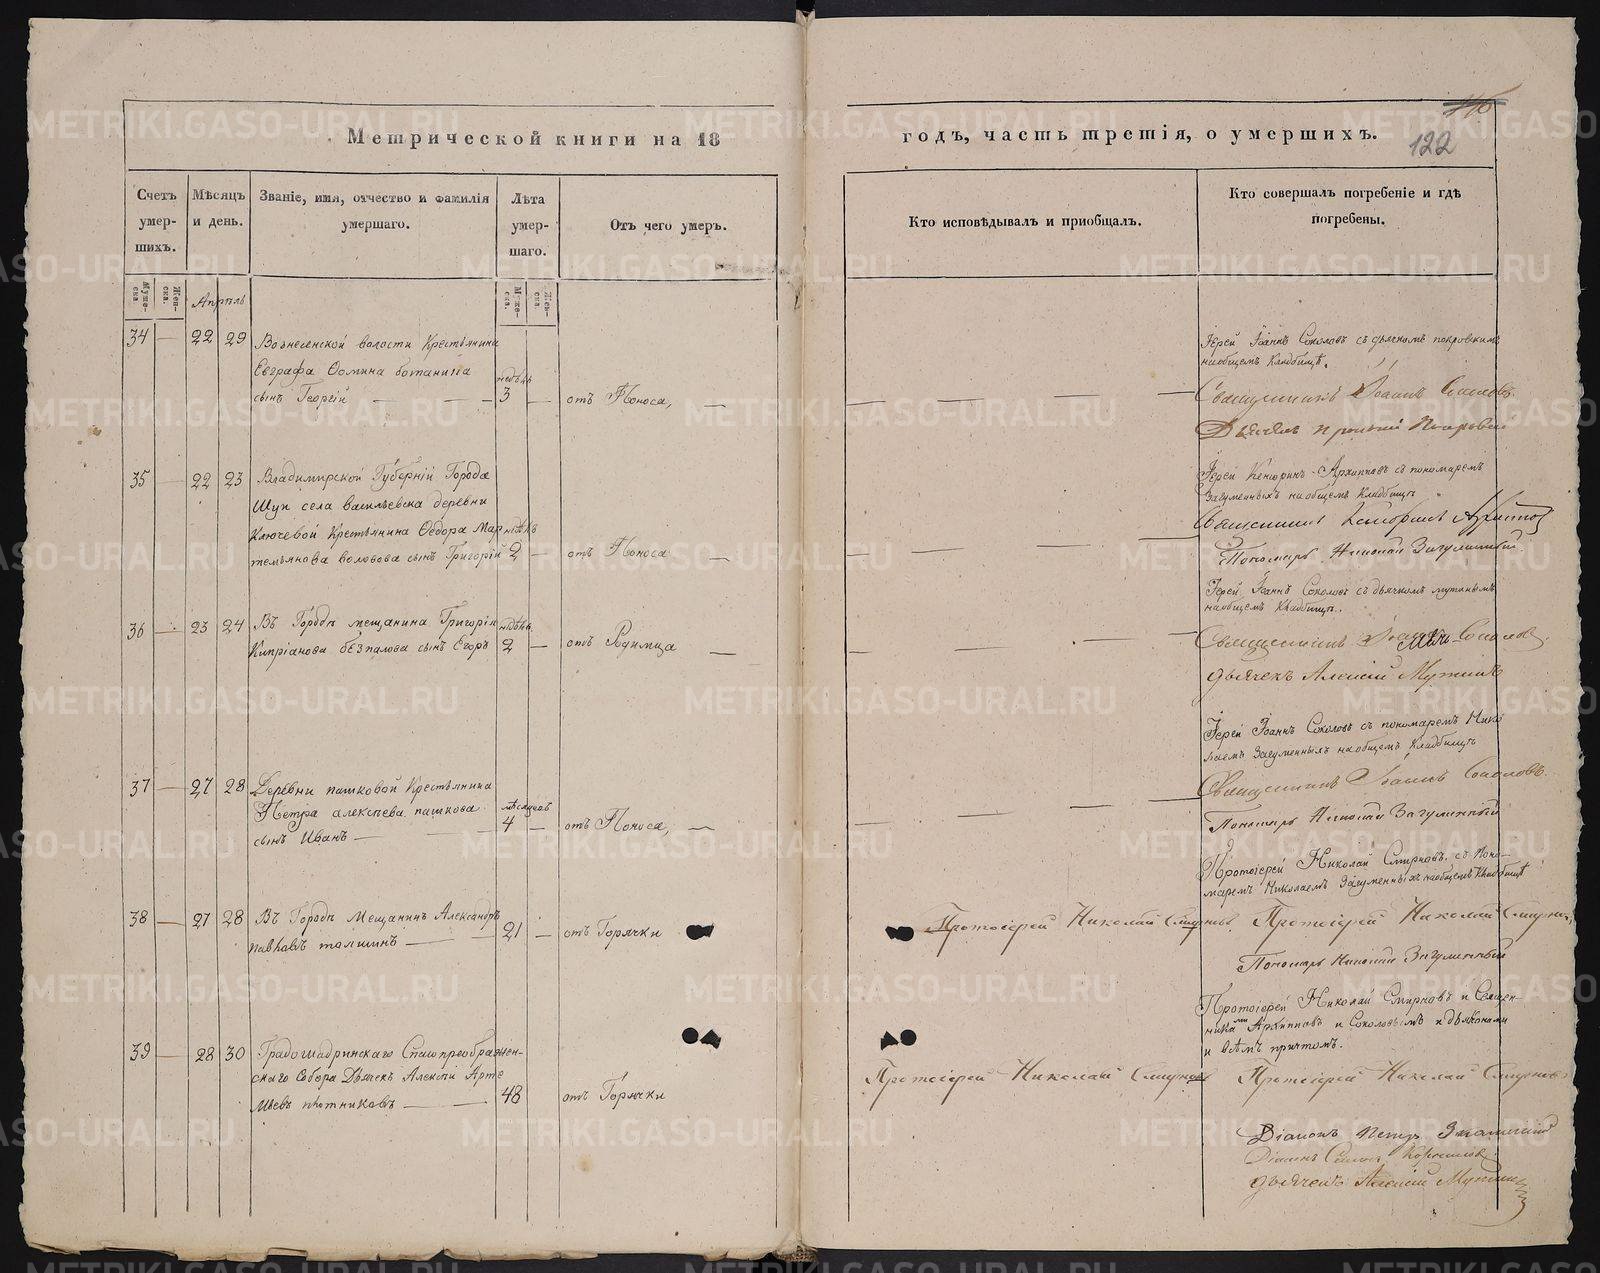 Метрической книги на 18
годъ, часть третія, о умершихъ.
122
Счетъ умер-шихъ.
Мѣсяцъ и день.
Званіе, имя, отчество и фамилія умершаго.
Лѣта умер-шаго.
Отъ чего умеръ.
Кто исповѣдывалъ и приобщалъ.
Кто совершалъ погребеніе и гдѣ погребены.
Муже-ска.
Жен-ска.
Апрѣль
Муже-ска.
Жен-ска.
34 — 22 29
Вознесенской волости Крестьянина
Евграфа Ѳомина
сынъ Георгій
недѣль
3 —
отъ Поноса,
Іерей Іоаннъ Соколовъ съ дьячкомъ покровскимъ
наобщемъ Кладбищѣ.
Священникъ Іоаннъ Соколовъ
35 — 22 23
Владимирской Губерній Города
Шуи села васильевска деревни
Ключевой Крестьянина Ѳедора Мар
темьянова волобова сынъ Григорій
недѣль
2 —
отъ Поноса
Іерей Архипповъ съ пономаремъ
Загуменныхъ наобщемъ Кладбищѣ
Пономарь Николай Загуменный
36 — 23 24
Въ Городѣ мещанина Григорія
Кипріанова безпалова сынъ Егоръ
недѣль
2 —
отъ Родимца
Іерей Іоаннъ Соколовъ съ дьячкомъ
наобщемъ Кладбищѣ.
Священникъ Іоаннъ Соколовъ
дьячекъ Алексій
37 — 27 28
Деревни пашковой Крестьянина
Петра алексѣева пашкова
сынъ Иванъ
мѣсяцовъ
4 —
отъ Поноса,
Іерей Іоаннъ Соколовъ съ пономаремъ Нико
лаемъ Загуменныхъ наобщемъ Кладбищѣ
Священникъ Іоаннъ Соколовъ
Пономарь Николай Загуменный
38 — 27 28
Въ Городѣ Мещанинъ Александръ
павловъ
21 —
отъ Горячки
Протоіерей Николай Смирновъ
Протоіерей Николай Смирновъ съ Поно-
маремъ Николаемъ Загуменныхъ наобщемъ Кладбищѣ
Протоіерей Николай Смирновъ
Пономарь Николай Загуменный
39 — 28 30
Градошадринскаго Спасопреображен-
скаго Собора Дьячекъ Алексій Арте
мьевъ плотниковъ
48
отъ Горячки
Протоіерей Николай Смирновъ
Протоіерей Николай Смирновъ и Священ-
ника Архипповъ и Соколовымъ и дьяконами
и всѣмъ причтомъ.
Протоіерей Николай Смирновъ
Діаконъ Петръ
Діаконъ
дьячекъ Алексій
METRIKI.GASO-URAL.RU